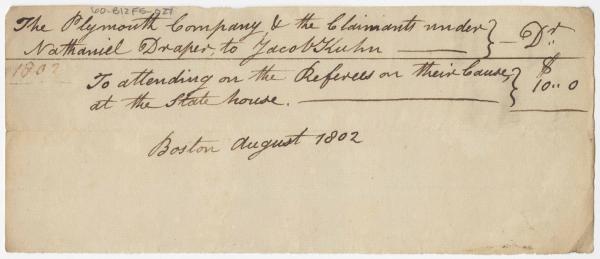 60-B12F6-027
The Plymouth Company, & the Claimants under } — Dr.
Nathaniel Draper, to Jacob Kuhn
1802
To attending on the Referees on their Cause, } $
at the State house. 10..0
Boston August 1802